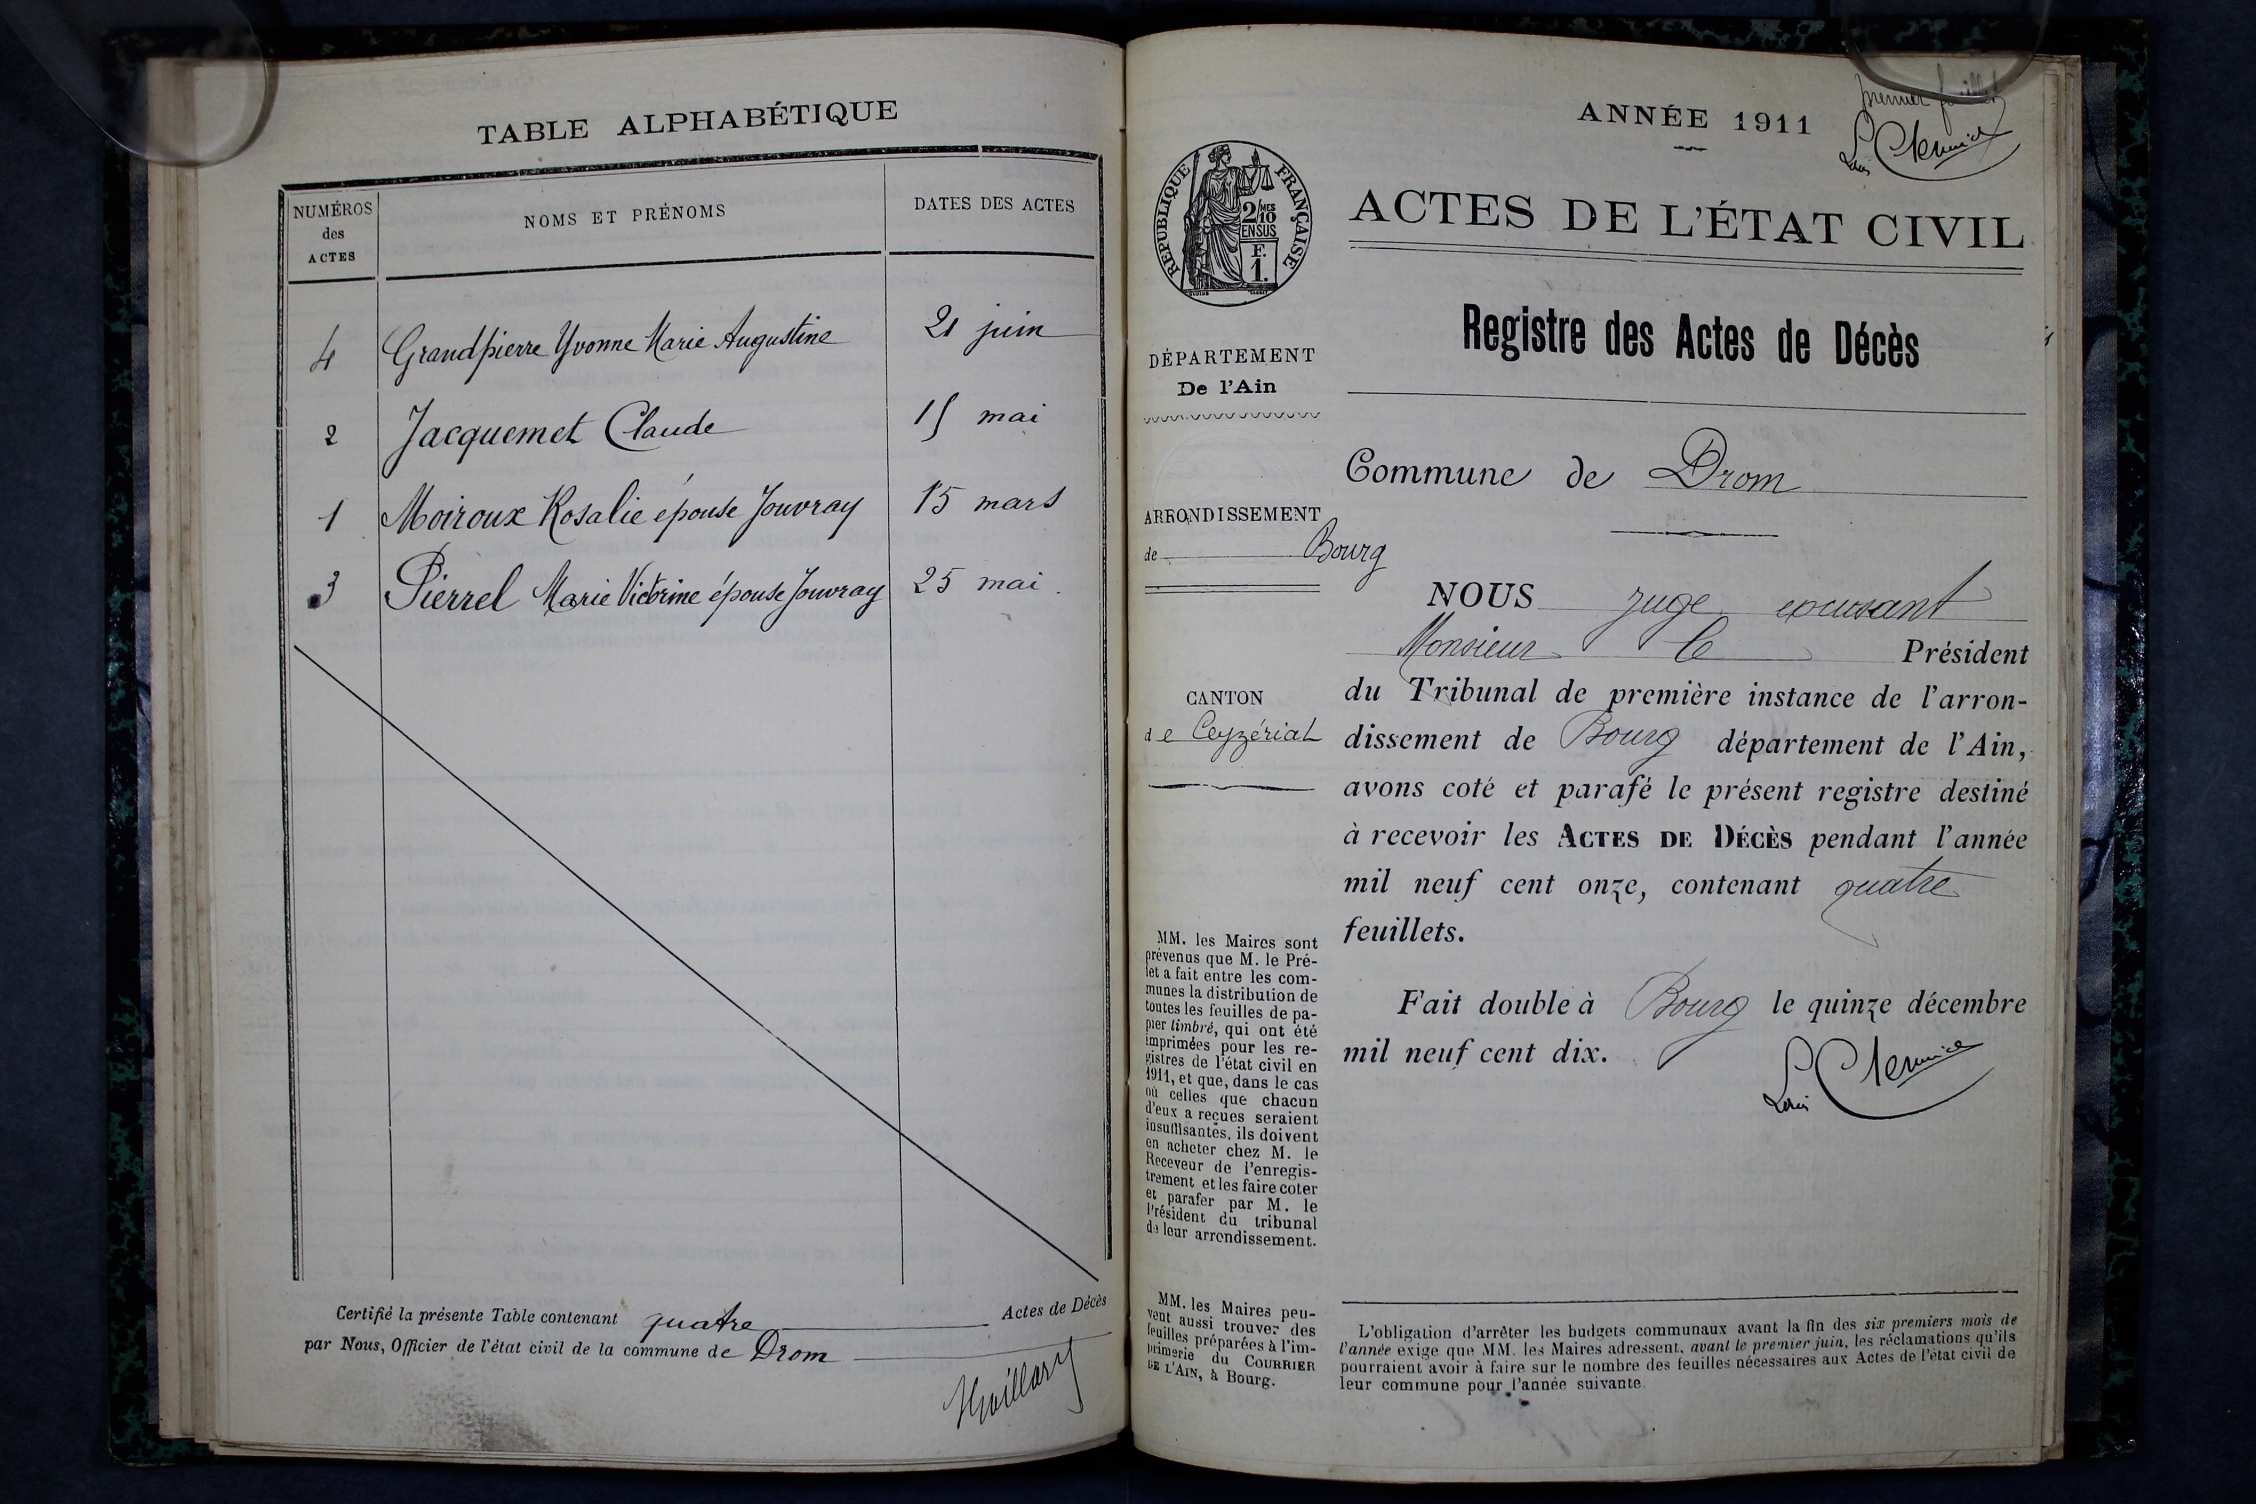 TABLE ALPHABÉTIQUE
NUMÉROS
des
ACTES
NOMS ET PRÉNOMS
DATES DES ACTES
4 Grandpierre Yvonne Marie Augustine 21 juin
2 Jacquemet Claude 15 mai
1 Moiroux Rosalie épouse Jouvray 15 mars
3 Pierrel Marie Victorine épouse Jouvray 25 mai
Certifié la présente Table contenant quatre Actes de Décès
par Nous, Officier de l'état civil de la commune de Drom
premier feuillet
ANNÉE 1911
Louis
RÉPUBLIQUE FRANÇAISE
2/10 MES
EN SUS
F.
1.
ACTES DE L'ÉTAT CIVIL
Registre des Actes de Décès
DÉPARTEMENT
De l'Ain
Commune de Drom
ARRONDISSEMENT
de Bourg
CANTON
de Ceyzériat
NOUS juge
Monsieur le Président
du Tribunal de première instance de l'arron-
dissement de Bourg département de l'Ain,
avons coté et parafé le présent registre destiné
à recevoir les ACTES DE DÉCÈS pendant l'année
mil neuf cent onze, contenant quatre
feuillets.
Fait double à Bourg le quinze décembre
mil neuf cent dix.
Louis
MM. les Maires sont
prévenus que M. le Pré-
fet a fait entre les com-
munes la distribution de
toutes les feuilles de pa-
pier timbré, qui ont été
imprimées pour les re-
gistres de l'état civil en
1911, et que, dans le cas
où celles que chacun
d'eux a reçues seraient
insuffisantes, ils doivent
en acheter chez M. le
Receveur de l'enregis-
trement et les faire coter
et parafer par M. le
Président du tribunal
de leur arrondissement.
MM. les Maires peu-
vent aussi trouver des
feuilles préparées à l'im-
primerie du COURRIER
DE L'AIN, à Bourg.
L'obligation d'arrêter les budgets communaux avant la fin des six premiers mois de
l'année exige que MM. les Maires adressent, avant le premier juin, les réclamations qu'ils
pourraient avoir à faire sur le nombre des feuilles nécessaires aux Actes de l'état civil de
leur commune pour l'année suivante.